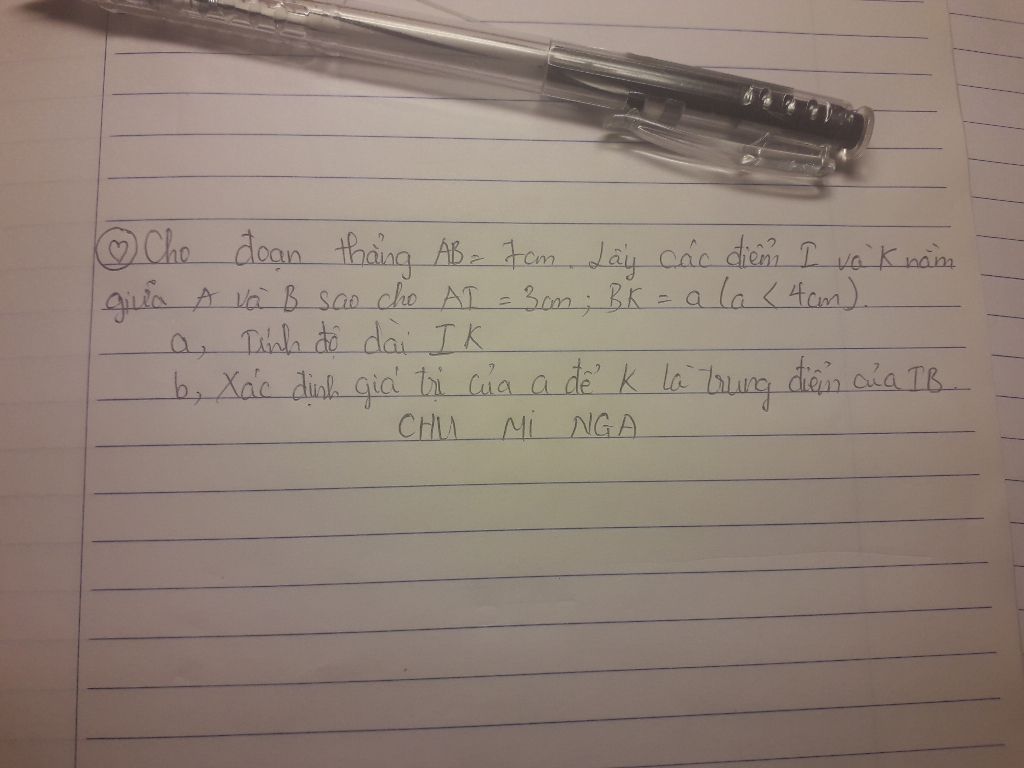 Cho đoạn thẳng AB = 7cm. Lấy các điểm I và K nằm
giữa A và B sao cho AI = 3cm; BK = a (a < 4cm).
a, Tính độ dài IK
b, Xác định giá trị của a để K là trung điểm của IB.
CHU MI NGA